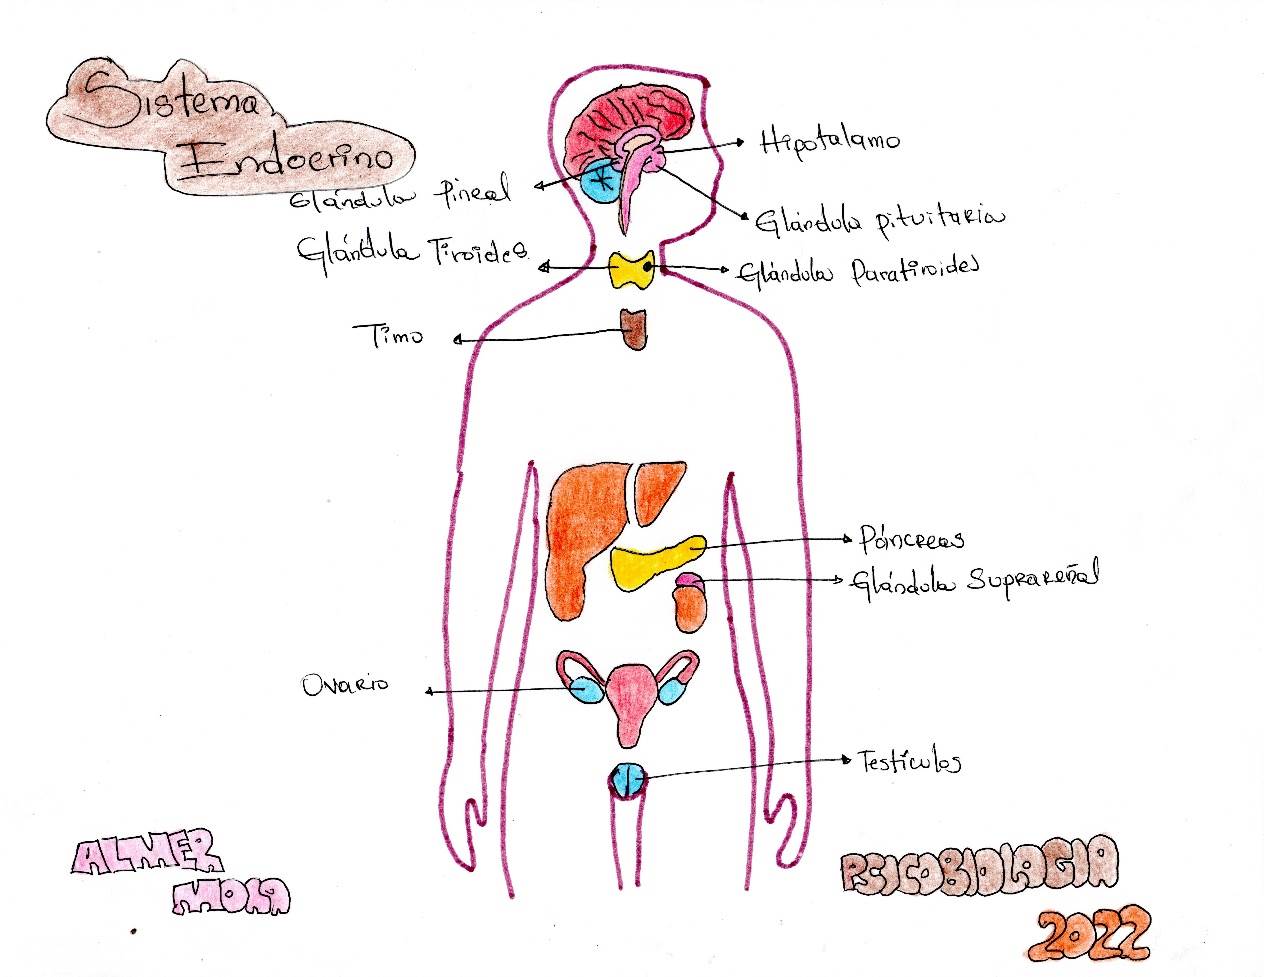 Sistema
Endocrino
Hipotalamo
Glándula Pineal
Glándula pituitaria
Glándula Tiroides
Glándula Paratiroides
Timo
Páncreas
Glándula Supra­reñal
Ovario
Testículos
ALMER
MOLA
PSICOBIOLOGIA
2022